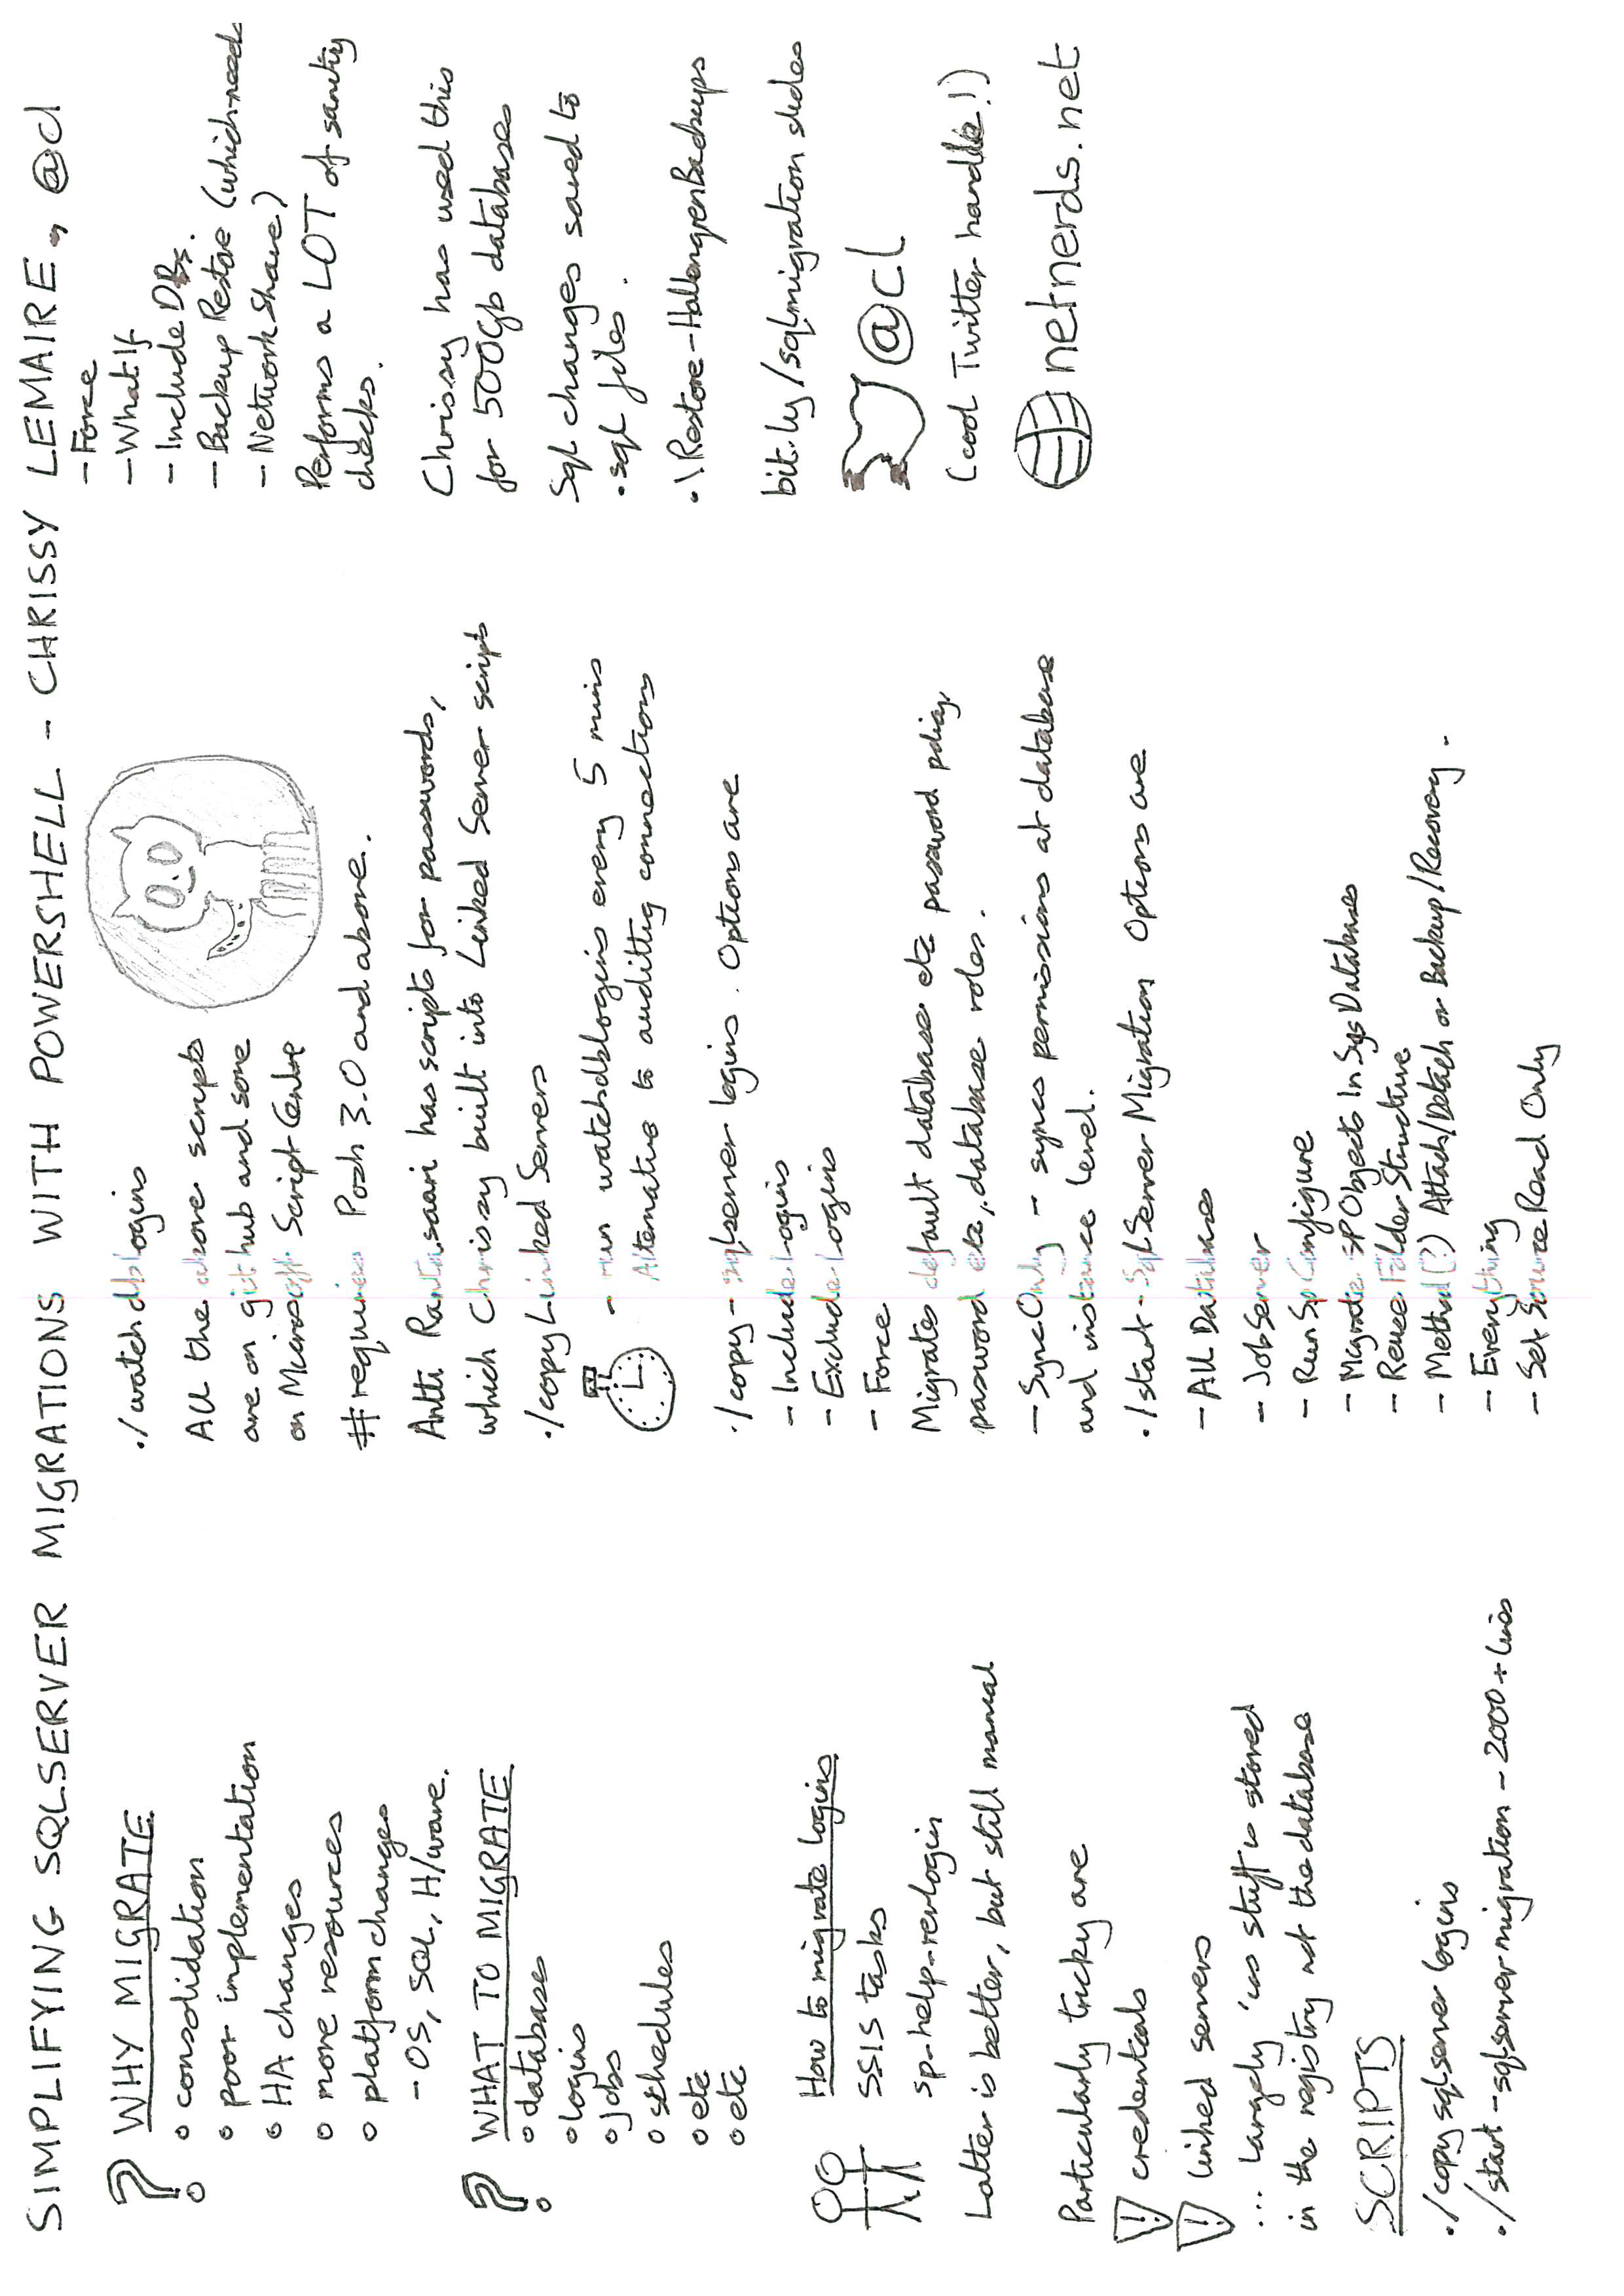 SIMPLIFYING SQLSERVER MIGRATIONS WITH POWERSHELL - CHRISSY LEMAIRE, @cl
? WHY MIGRATE
o consolidation
o poor implementation
o HA changes
o more resources
o platform changes
- OS, SQL, H/ware.
? WHAT TO MIGRATE
o databases
o logins
o jobs
o schedules
o etc
o etc
How to migrate logins
SSIS tasks
sp-help-revlogin
Latter is better, but still manual
Particularly tricky are
! credentials
! linked servers
... largely 'cos stuff is stored
in the registry not the database
SCRIPTS
./copy sqlserver logins
./start-sqlserver migration - 2000+ lines
./watchdblogins
All the above scripts
are on github and some
on Microsoft Script Centre
#requires Posh 3.0 and above.
Antti Rantasaari has scripts for passwords,
which Chrissy built into Linked Server scripts
./copy Linked Servers
- run watchdblogins every 5 mins
Alternative to auditting connections
./copy-sqlserver logins. Options are
- Include Logins
- Exclude Logins
- Force
Migrates default database etc password policy,
password etc, database roles.
- SyncOnly - syncs permissions at database
and instance level.
./start-SqlServer Migration Options are
- All Databases
- JobServer
- Run Sp Configure
- Migrate SP Objects In Sys Databases
- Reuse Folder Structure
- Method (?) Attach/Detach or Backup/Recovery.
- Everything
- Set Source Read Only
- Force
- What If
- Include DBs.
- Backup Restore (which needs
- Network Share)
Performs a LOT of sanity
checks.
Chrissy has used this
for 500Gb databases
Sql changes saved to
.sql files.
.\Restore-HallengrenBackups
bit.ly/sqlmigration slides
@cl
(cool Twitter handle!)
netnerds.net